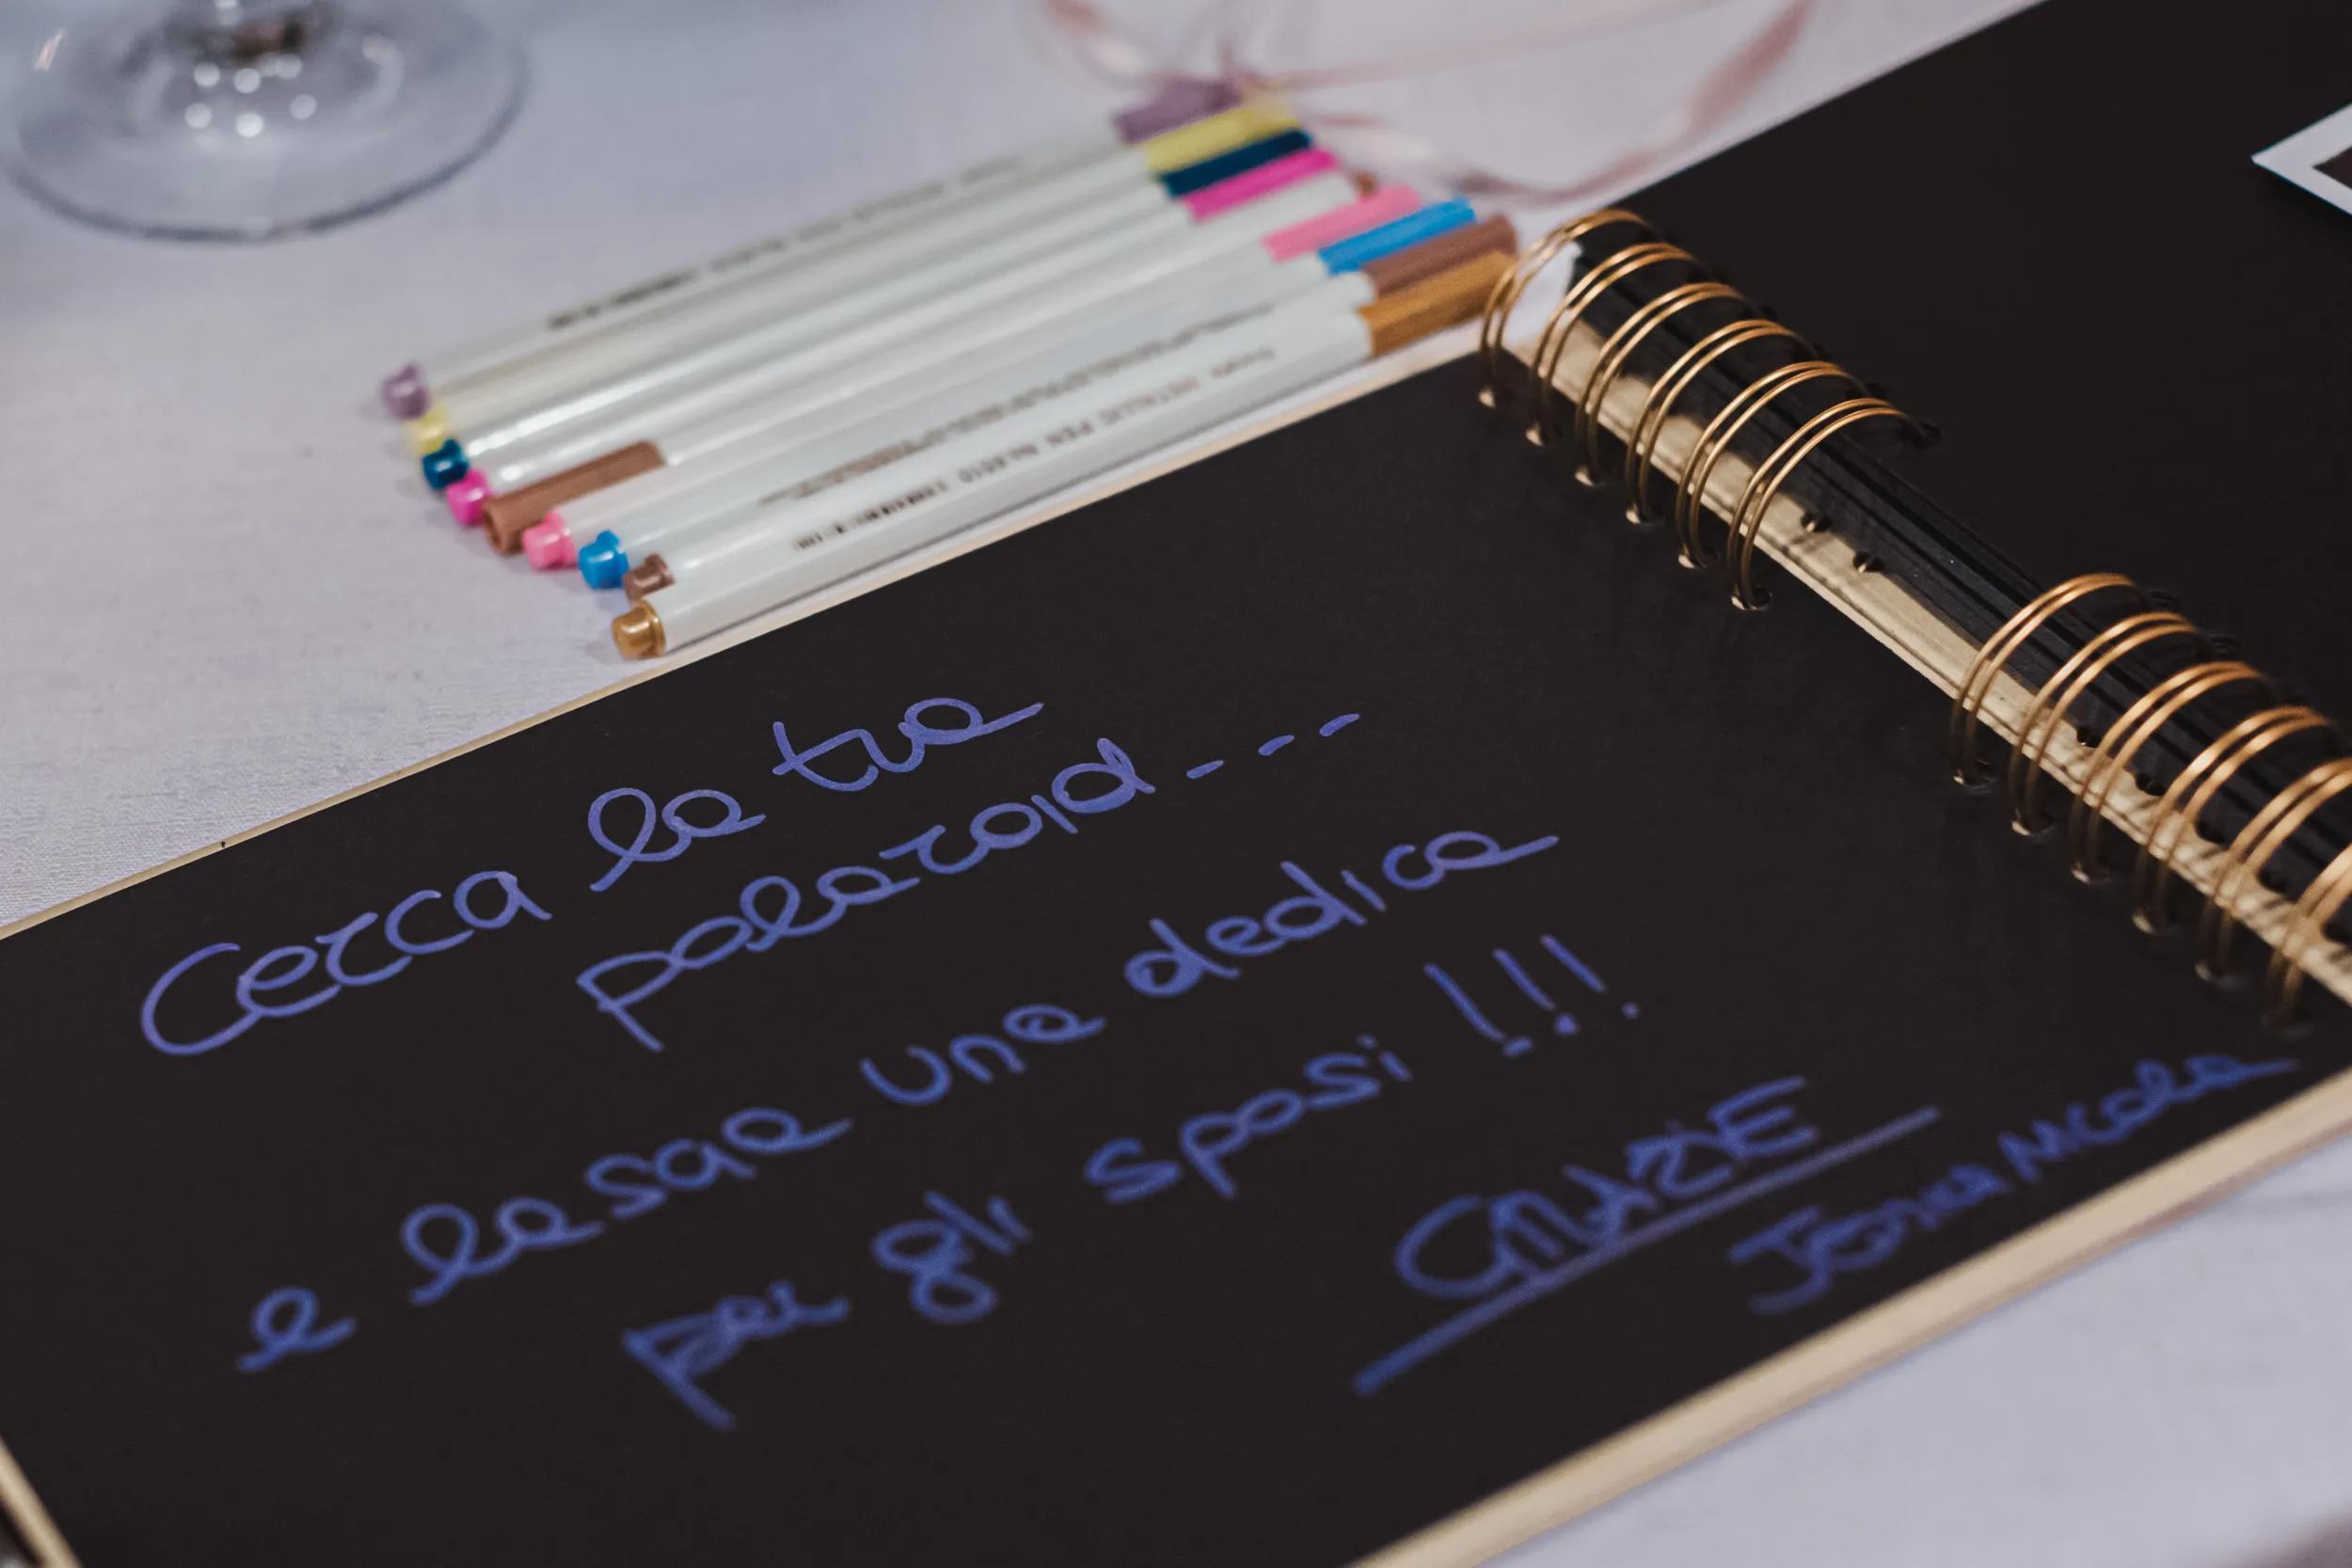 METALLIC PEN No.6510
Cerca la tua
polaroid---
e lascia una dedica
per gli sposi!!!
GRAZIE
Nicola